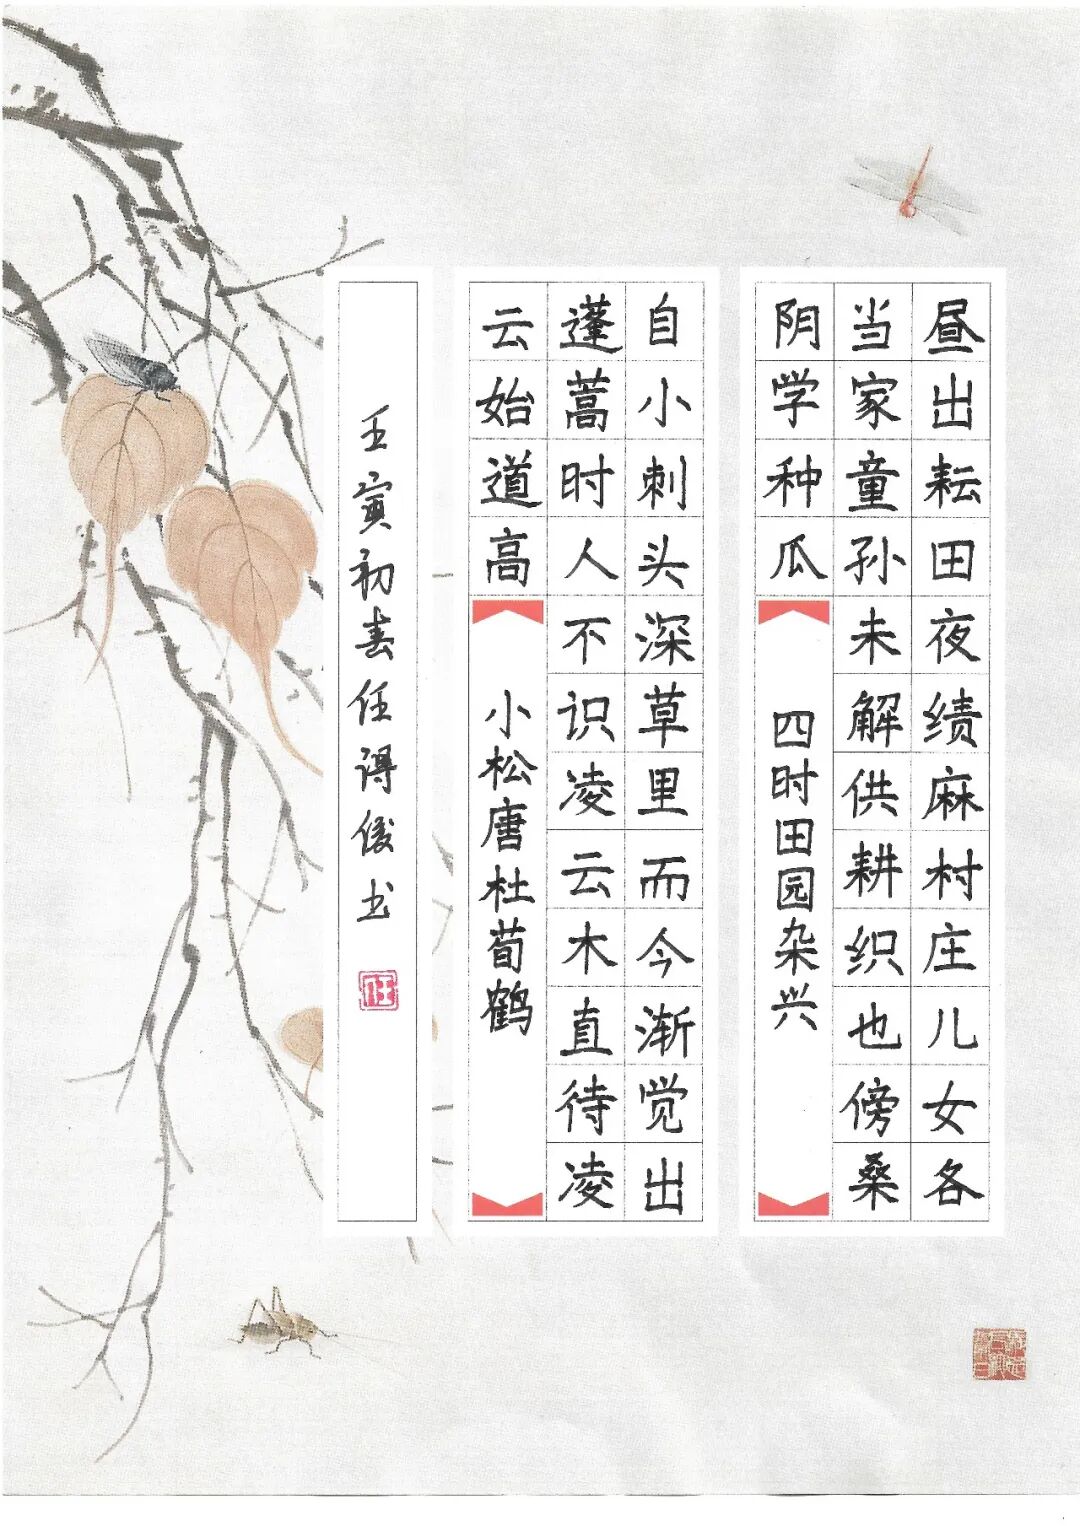 昼出耘田夜绩麻村庄儿女各
当家童孙未解供耕织也傍桑
阴学种瓜
四时田园杂兴
自小刺头深草里而今渐觉出
蓬蒿时人不识凌云木直待凌
云始道高
小松唐杜荀鹤
壬寅初春任得俊书
任